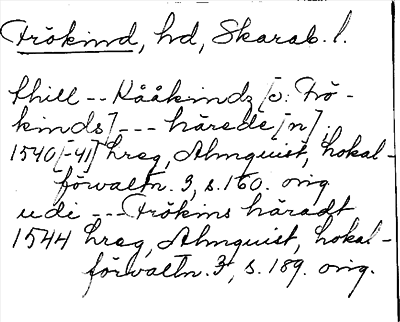 Frökind, hd, Skarab. l.
thill -- Kååkindz [ɔ: Frö-
kinds] --- härede [n]
1540[-41] Lreg, Almquist, Lokal-
förvaltn. 3, s. 160. orig.
udi --- Frökins häradt
1544 Lreg, Almquist, Lokal-
förvaltn. 3, s. 189. orig.